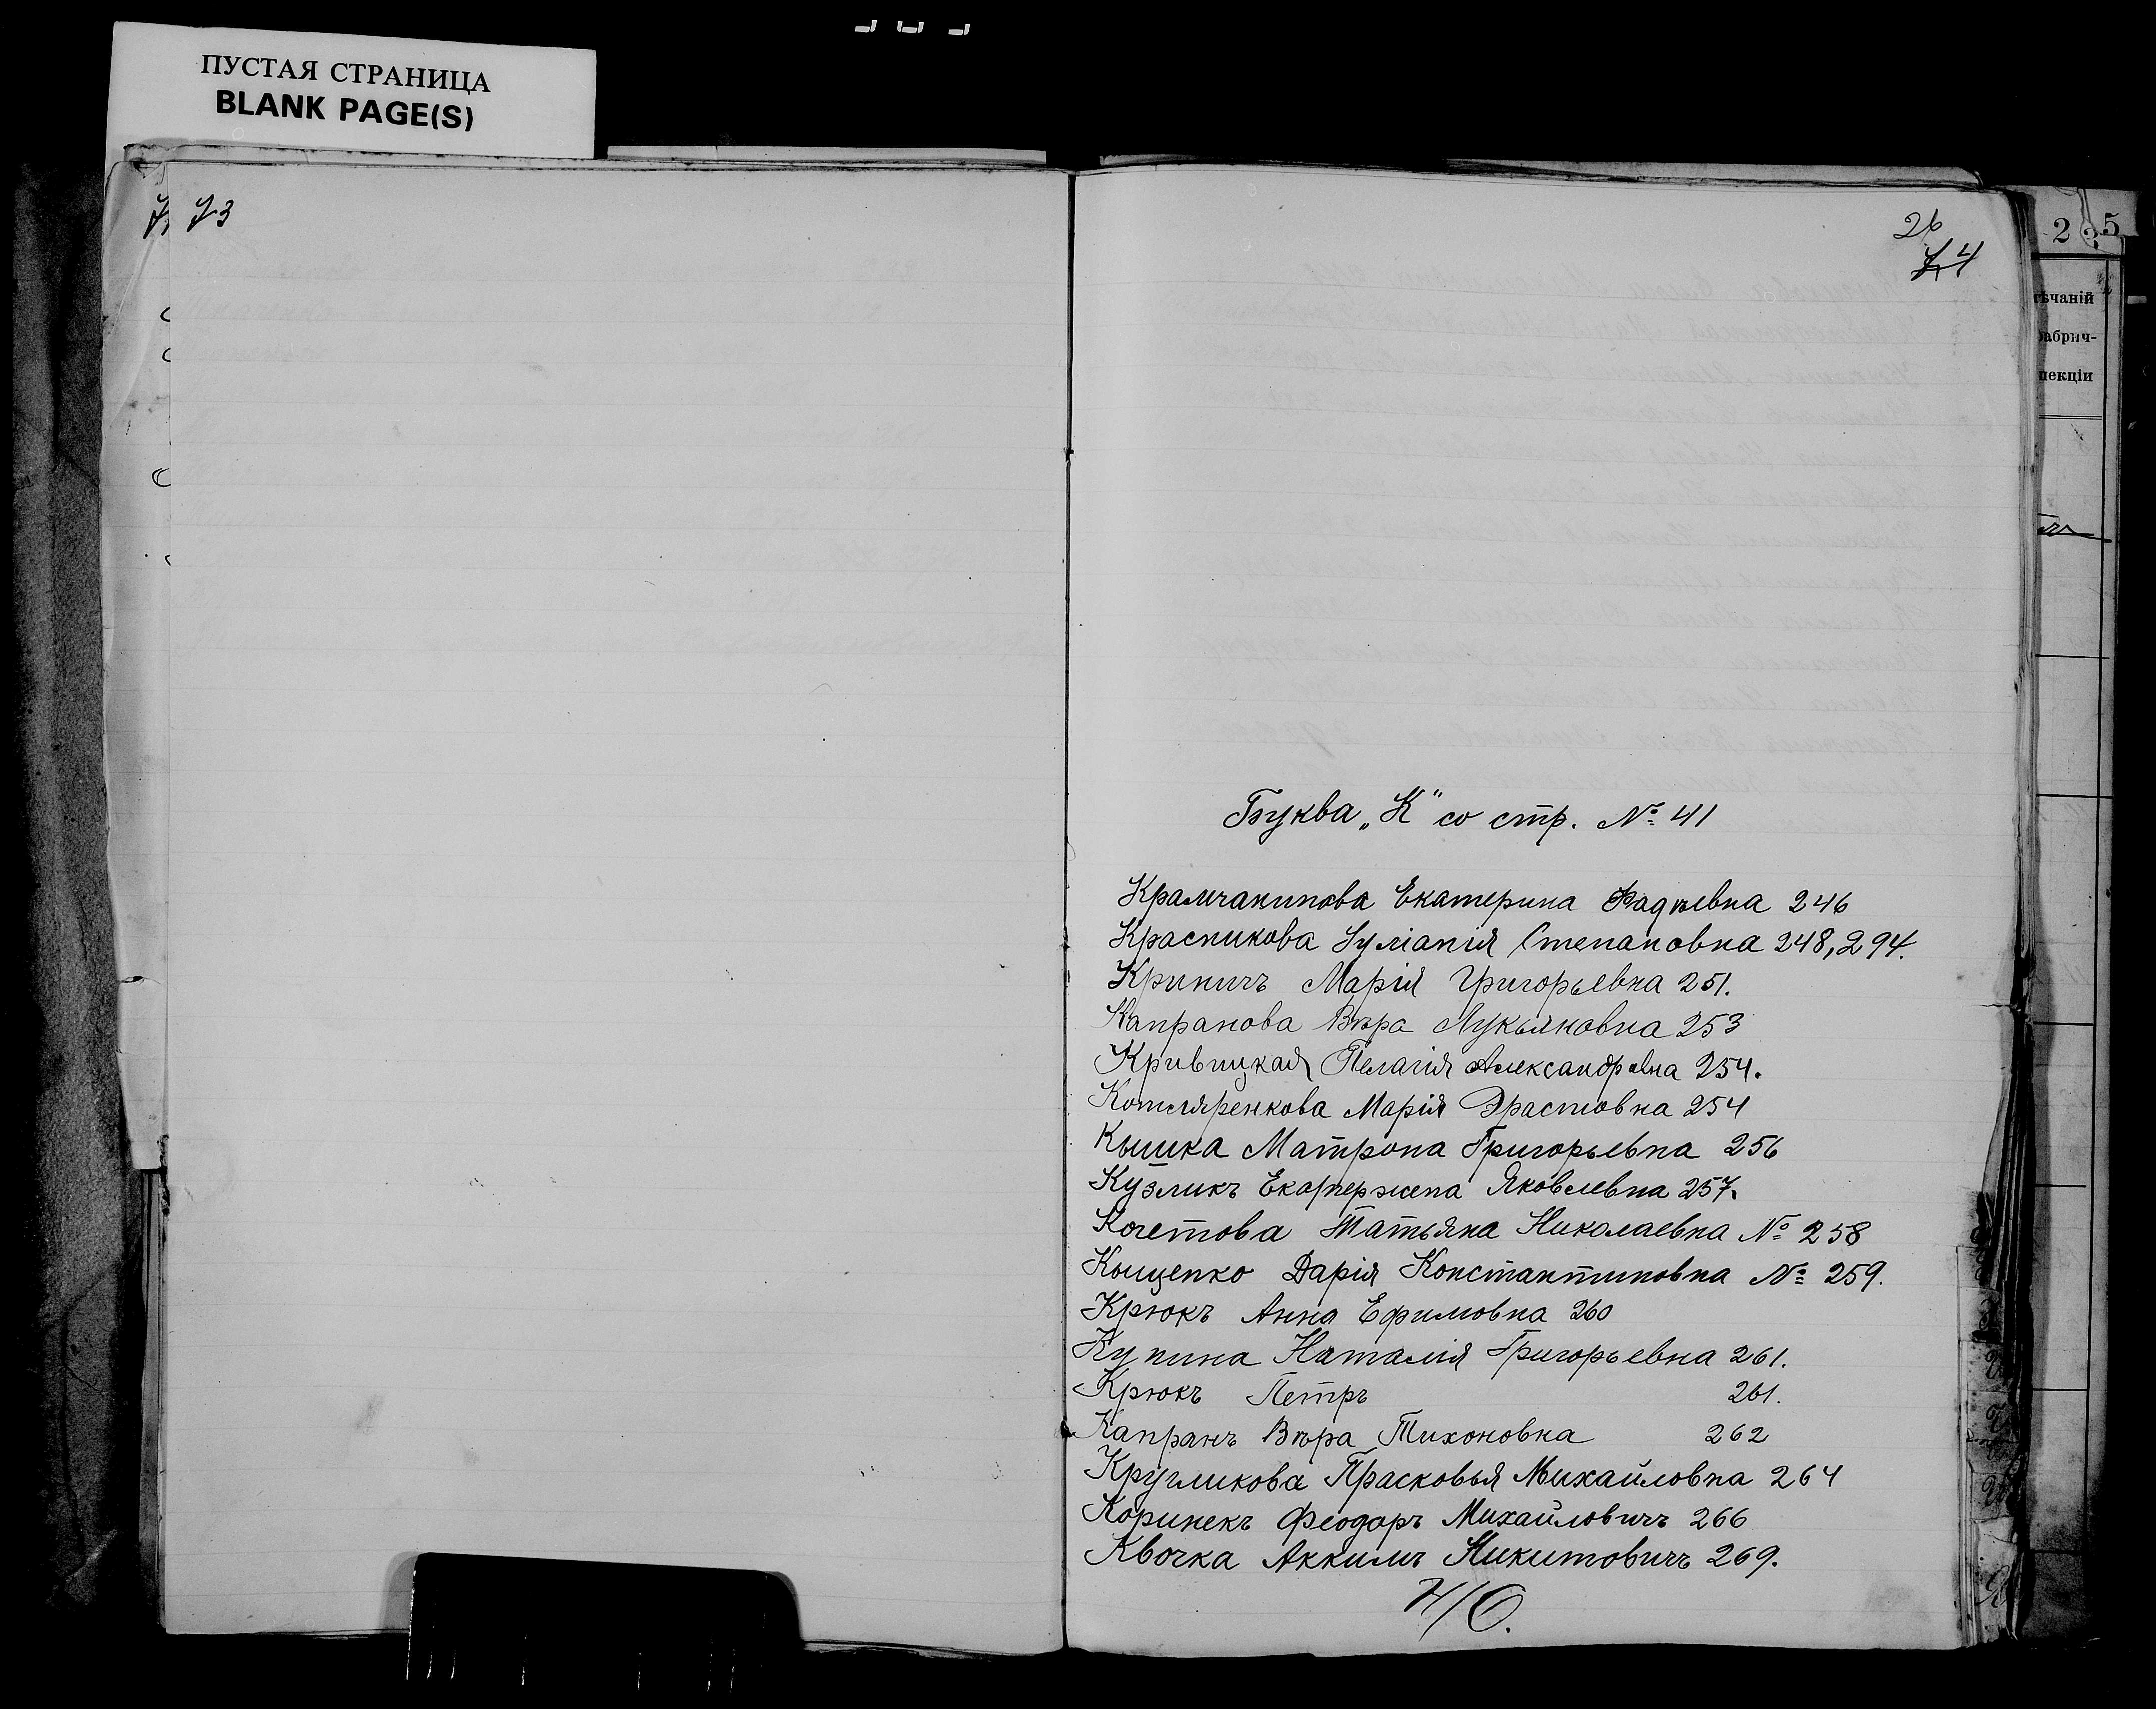 ПУСТАЯ СТРАНИЦА
BLANK PAGE(S)
73
26
74
2 3 5
ѣчаній
фабрич-
пекціи
Буква „К" со стр. № 41
Крамчанинова Екатерина Фадѣевна 246
Красникова Іуліанія Степановна 248, 294.
Криничъ Марія Григорьевна 251.
Капранова Вѣра Лукьяновна 253
Кривицкая Пелагія Александровна 254.
Котляренкова Марія Эрастовна 254
Кышка Матрона Григорьевна 256
Кузликъ Екатерина Яковлевна 257.
Кочетова Татьяна Николаевна № 258
Кыценко Дарія Константиновна № 259.
Крюкъ Анна Ефимовна 260
Купина Наталія Григорьевна 261.
Крюкъ Петръ 261.
Капранъ Вѣра Тихоновна 262
Кругликова Прасковья Михайловна 264
Коринекъ Феодоръ Михайловичъ 266
Квочка Аккимъ Никитовичъ 269.
Н/О.